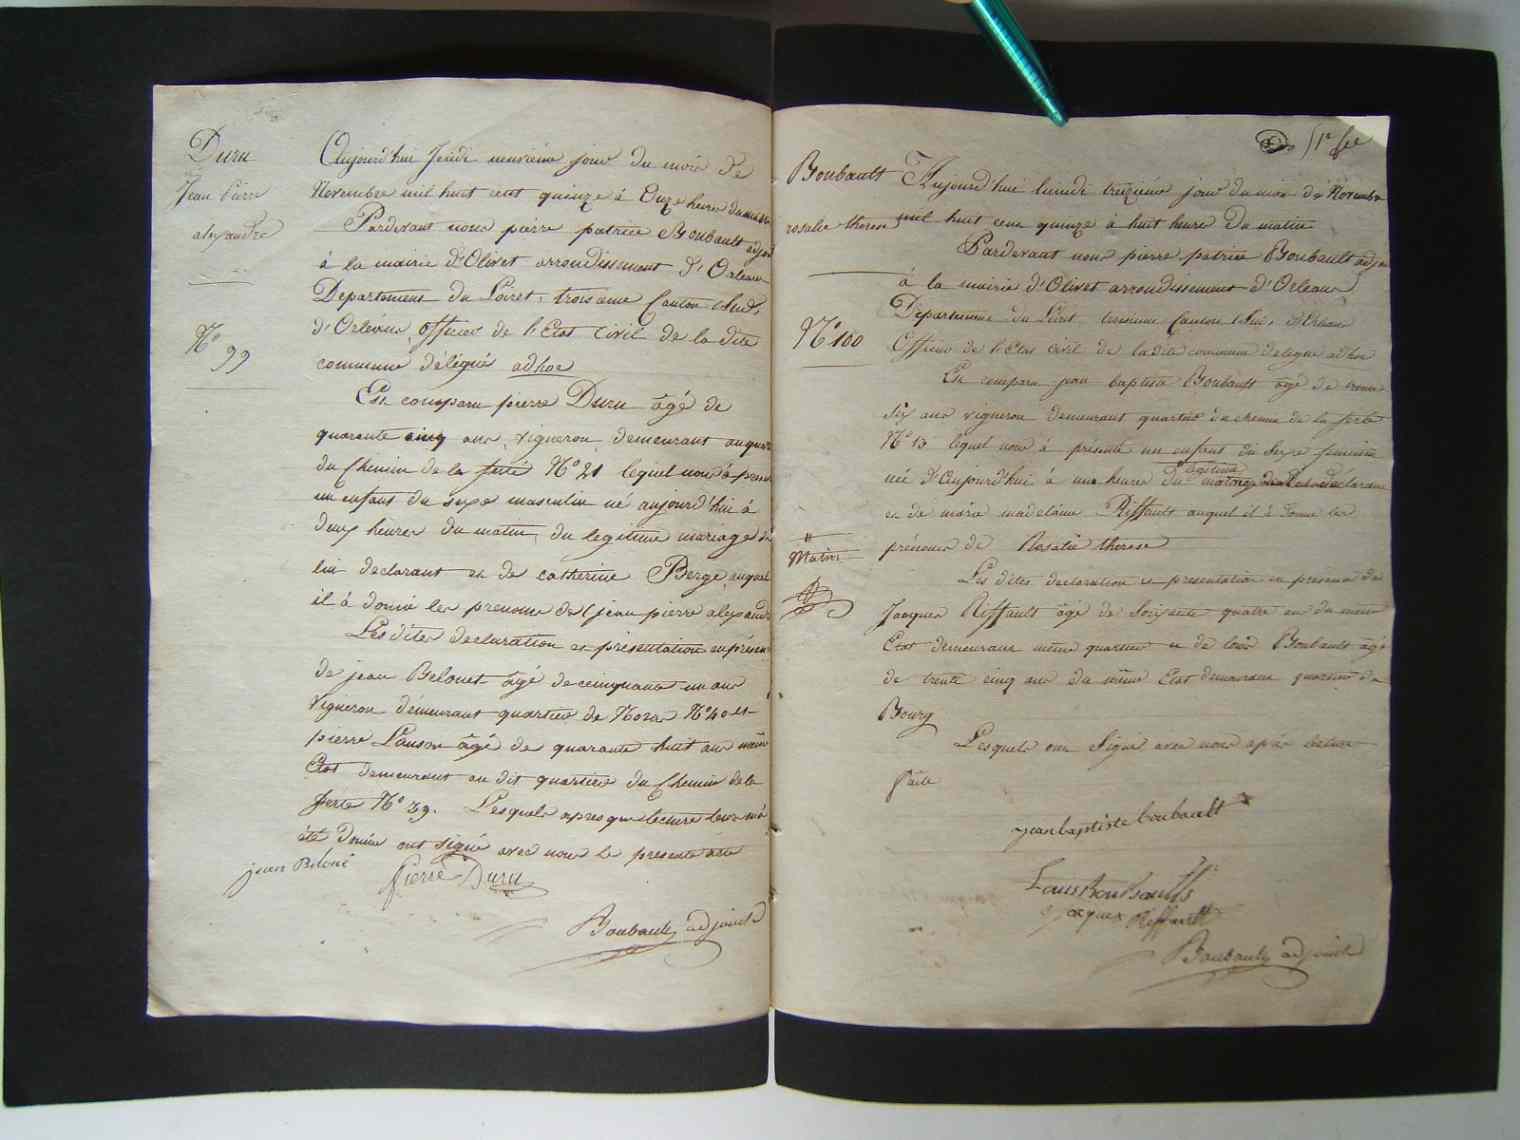 Duru
Jean Pierre
alexandre
N° 99
Aujourd'hui Jeudi neuvieme jour du mois de
Novembre mil huit cent quinze à Onze heures du matin
Pardevant nous pierre patrice Boubault adjoint
à la mairie d'Olivet arrondissement d'Orleans
Departement du Loiret, troisieme Canton Sud,
d'Orléans, officier de l'Etat civil de la dite
commune délégué adhoc
Est comparu pierre Duru âgé de
quarante cinq ans vigneron demeurant au quartier
du Chemin de la ferté N° 21 lequel nous à présenté
un enfant du sexe masculin né aujourd'hui à
deux heures du matin, du legitime mariage de
lui declarant et de catherine Berge auquel
il à donné les prenoms de jean pierre alexandre
Les dites declaration et présentation en présence
de jean Belouet âgé de cinquante un ans
vigneron demeurant quartier de Noras N° 40 et
pierre Lanson âgé de quarante huit ans même
Etat demeurant au dit quartier du Chemin de la
ferté N° 39. Lesquels apres que lecture leur à
été donnée ont signé avec nous le present acte
jean Beloué
Pierre Duru
Boubault adjoint
51e f
Boubault
rosalie therese
N° 100
Matin
Aujourd'hui lundi treizieme jour du mois de Novembre
mil huit cent quinze à huit heure du matin
Pardevant nous pierre patrice Boubault adjoint
à la mairie d'Olivet arrondissement d'Orleans
Departement du Loiret troisieme Canton Sud, d'Orleans
Officier de l'Etat civil de ladite commune delegué adhoc
Est comparu jean baptiste Boubault âgé de trente
six ans vigneron demeurant quartier du chemin de la ferté
N° 13 lequel nous à présenté un enfant du Sexe feminin
née d'Aujourd'hui à une heure du legitime mariage de lui déclarant
et de marie madelaine Riffault auquel il à donné les
prénoms de Rosalie therese
Les dites declaration et presentation en présence de
Jacques Riffault âgé de soixante quatre ans du même
Etat demeurant même quartier et de louis Boubault âgé
de trente cinq ans du même Etat demeurant quartier du
Bourg
Lesquels ont Signé avec nous après lecture
faite
jean baptiste boubault
Louis Boubault
jacques Riffault
Boubault adjoint